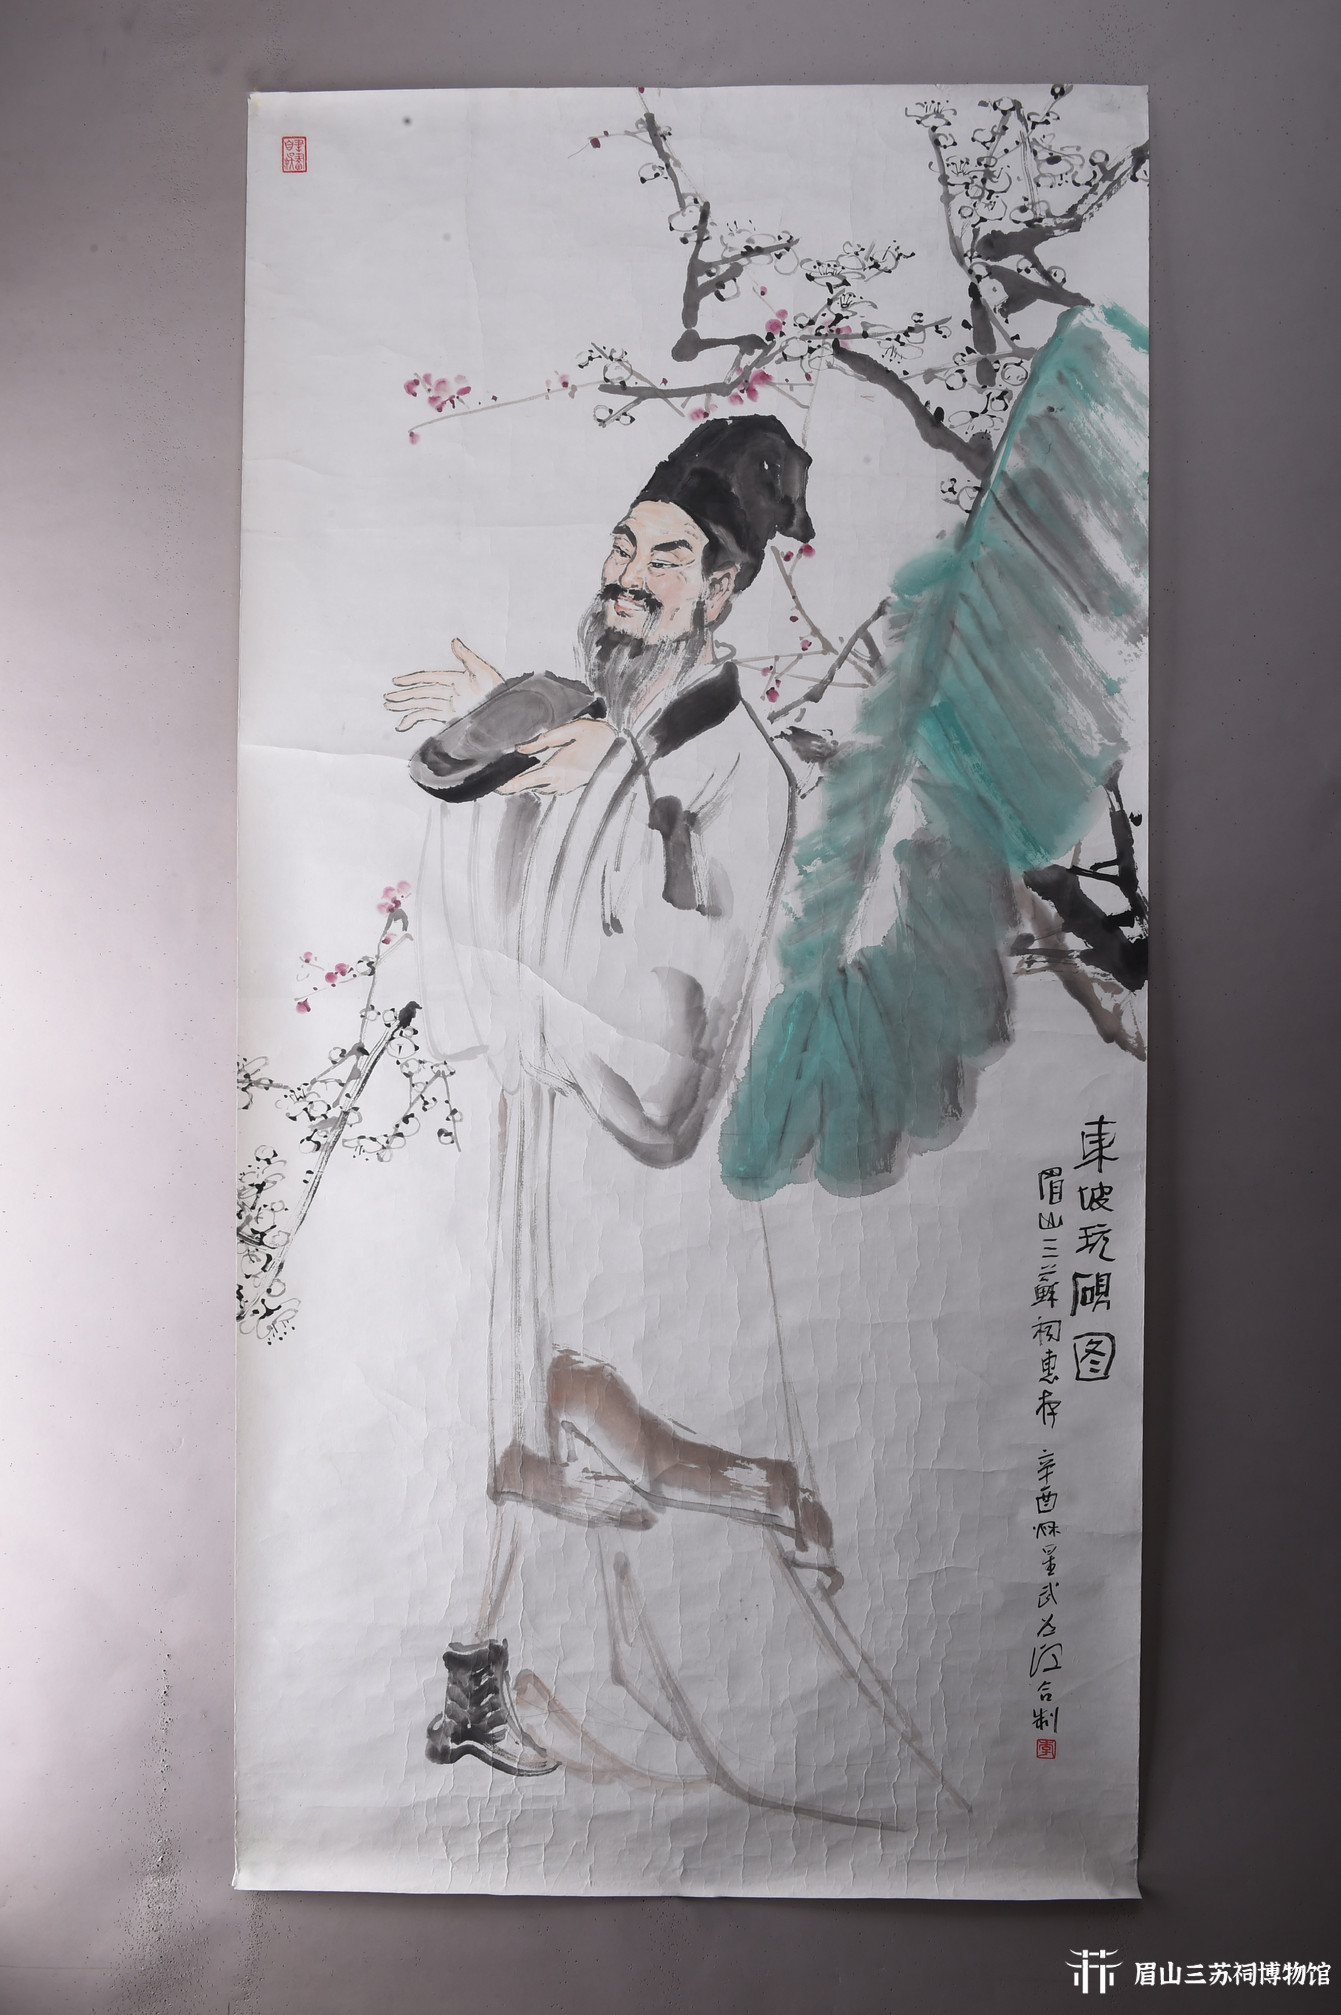 東坡玩硯图
眉山三蘇祠惠存
辛酉秌星武 合制
李
眉山三苏祠博物馆